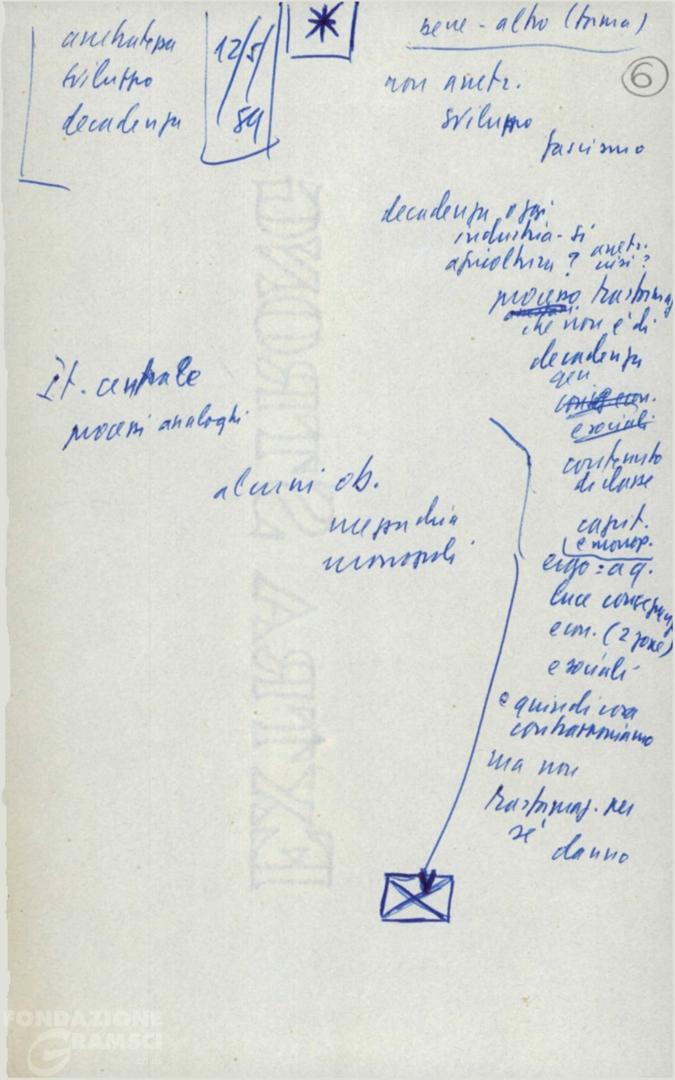 arretratezza
sviluppo
decadenza
12/5/
59
bene - altro (forma)
6
non arretr.
sviluppo
fascismo
decadenza oggi
industria - sì
agricoltura? arretr.
crisi?
processo trasformaz
che non è di
decadenza
gen
conseg econ.
e sociali
contenuto
di classe
capit.
e monop.
ergo = a q.
luce conseguenz
econ. (2 zone)
e sociali
e quindi cosa
contrapponiamo
ma non
trasformaz. per
sé danno
It. centrale
processi analoghi
alcuni ob.
mezzadria
monopoli
EXTRA STRONG
FONDAZIONE
GRAMSCI